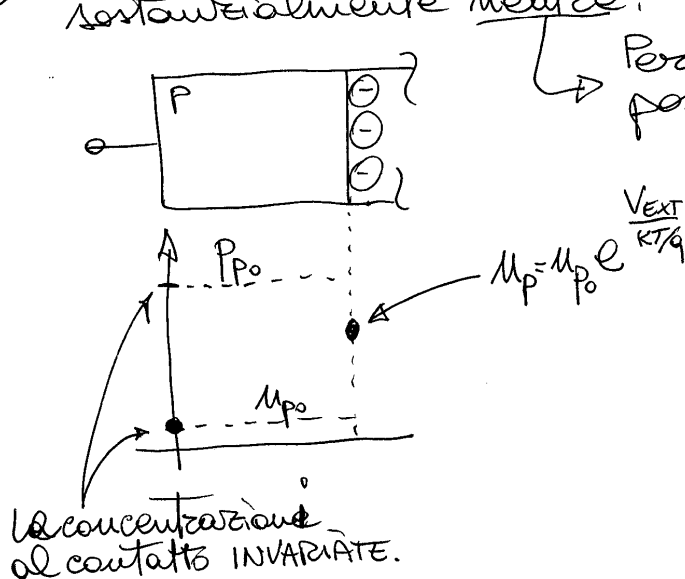 sostanzialmente neutre.
Per
po
P
⊖
⊖
⊖
Pp₀
np = np₀ e^(VEXT / KT/q)
np₀
le concentrazioni
al contatto INVARIATE.